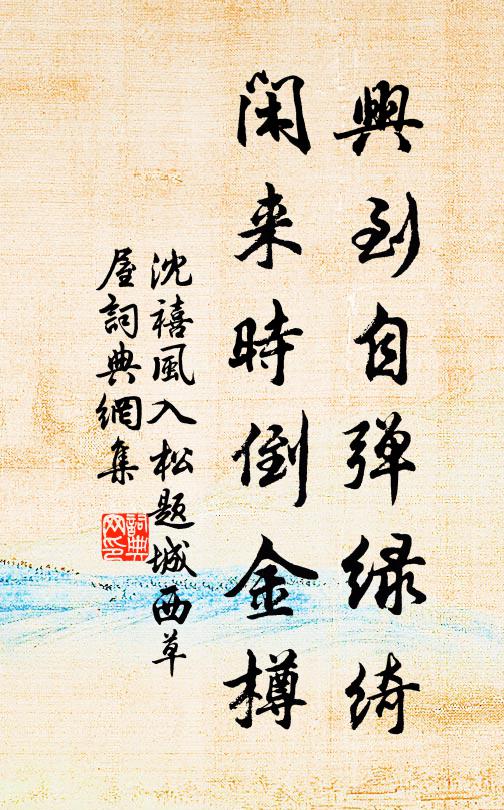 興到自弹緑綺
閑来時倒金樽
沈禧風入松題城西草
屋詞典網集
詞典网印